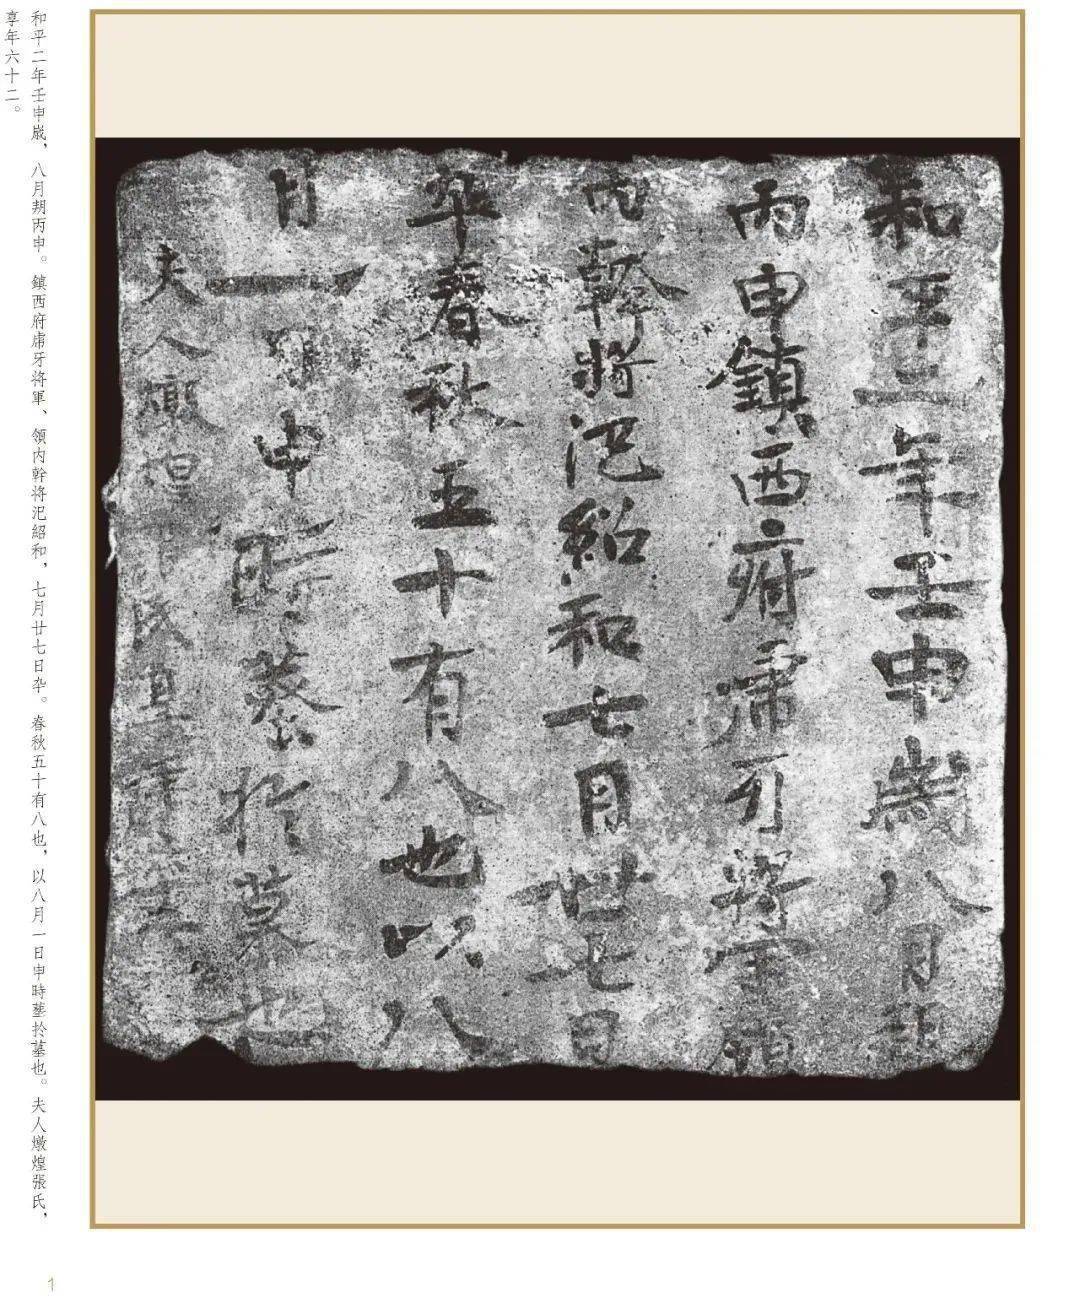 和平二年壬申歲八月朔
丙申鎮西府虎牙將軍領
內幹將氾紹和七月廿七日
卒春秋五十有八也以八
月一日申時塟於墓也
夫人燉煌張氏享年六十二
和平二年壬申歲，八月朔丙申。鎮西府虎牙將軍、領內幹將氾紹和，七月廿七日卒。春秋五十有八也，以八月一日申時塟於墓也。夫人燉煌張氏，
享年六十二。
1